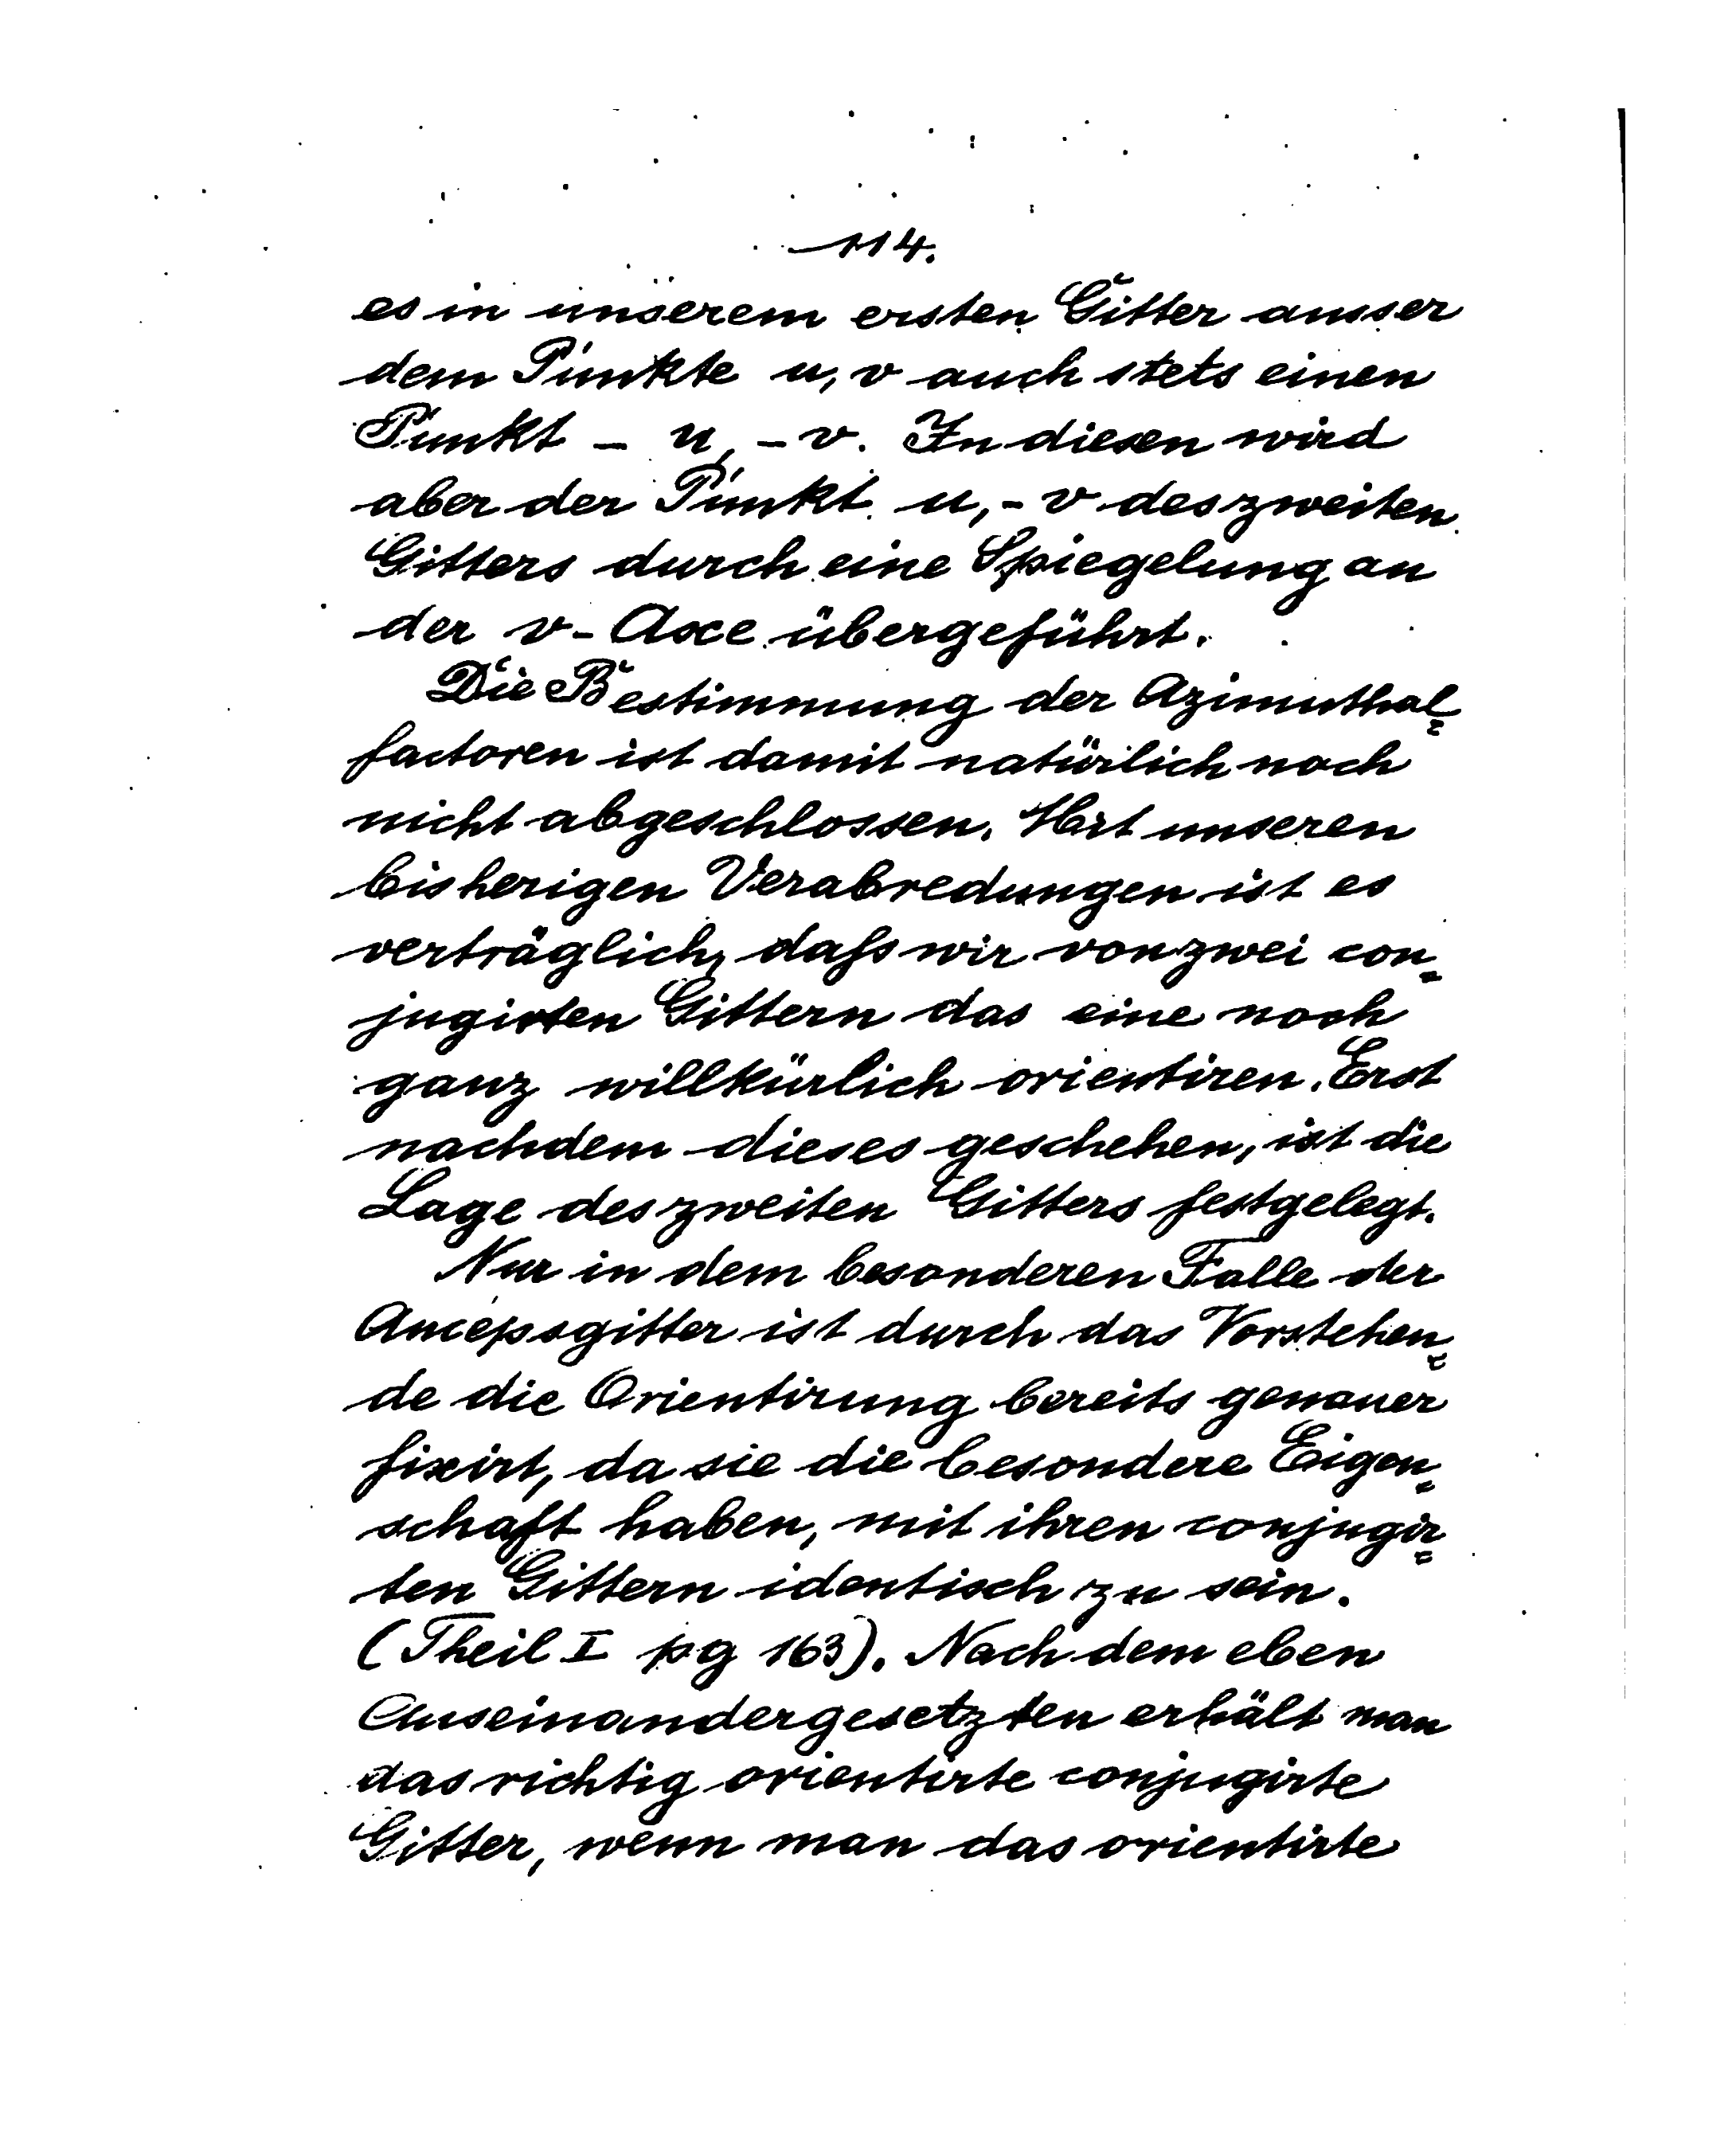 114.
es in unserem ersten Gitter ausser
dem Punkte u, v auch stets einen
Punkt - u, - v. In diesen wird
aber der Punkt u, - v des zweiten
Gitters durch eine Spiegelung an
der v-Axe übergeführt.
Die Bestimmung der Azimuthal=
factoren ist damit natürlich noch
nicht abgeschlossen. Mit unseren
bisherigen Verabredungen ist es
verträglich, daſs wir von zwei con=
jugirten Gittern das eine noch
ganz willkürlich orientiren. Erst
nachdem dieses geschehen, ist die
Lage des zweiten Gitters festgelegt.
Nur in dem besonderen Falle der
Ancepsgitter ist durch das Vorstehen=
de die Orientirung bereits genauer
fixirt, da sie die besondere Eigen=
schaft haben, mit ihren conjugir=
ten Gittern identisch zu sein.
(Theil I pg 163). Nach dem eben
Auseinandergesetzten erhält man
das richtig orientirte conjugirte
Gitter, wenn man das orientirte